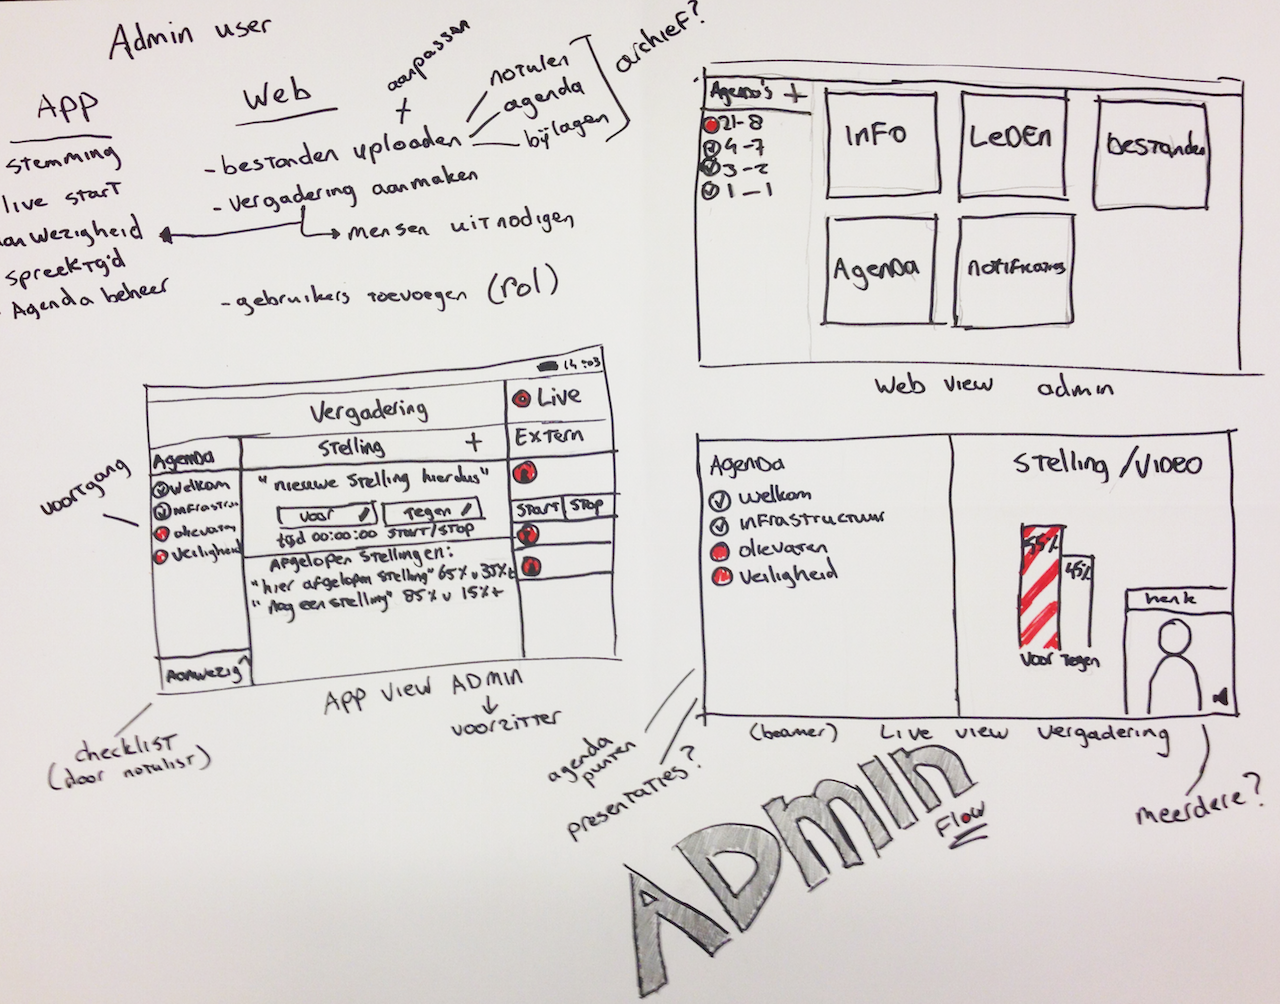 Admin user
App
stemming
live start
anwezigheid
spreektijd
Agenda beheer
Web
aanpassen
+
- bestanden uploaden
notulen
agenda
bijlagen
archief?
- vergadering aanmaken
mensen uitnodigen
- gebruikers toevoegen (rol)
Agenda's +
21-8
4-7
3-2
1-1
INFO
LEDEN
bestanden
Agenda
notificaties
Web view admin
voortgang
14:03
Vergadering
Live
Agenda
Stelling +
Extern
Welkom
infrastruc
olievaten
Veiligheid
"nieuwe stelling hier dus"
voor
Tegen
tijd 00:00:00 START/STOP
Afgelopen stellingen:
"hier afgelopen stelling" 65% v 35% t
"nog een stelling" 85% v 15% t
START
STOP
Aanwezig
APP VIEW ADMIN
voorzitter
checklist
(door notulist)
Agenda
welkom
infrastructuur
olievaten
Veiligheid
Stelling/VIDEO
55%
45%
Voor
Tegen
henk
(beamer) Live view vergadering
agenda
punten
presentaties?
meerdere?
ADMIN
Flow